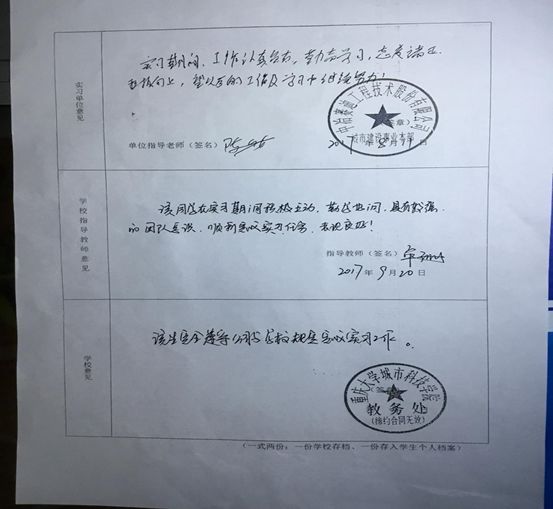 实习单位意见
实习期间，工作认真负责，勤奋学习，态度诸正
积极向上，望以后的工作及学习中继续努力！
工程技术股份有限公司
（签章）
城市建设事业本部
单位指导老师（签名）
2017年 月 日
学校指导教师意见
该同学在实习期间积极主动、勤学好问，具有较强
的团队意识，顺利完成实习任务，表现良好！
指导教师（签名）
2017年9月20日
学校意见
该生完全遵守公司与学校规定完成实习工作。
重庆大学城市科技学院
教务处
(缔约合同无效)
（一式两份：一份学校存档、一份存入学生个人档案）